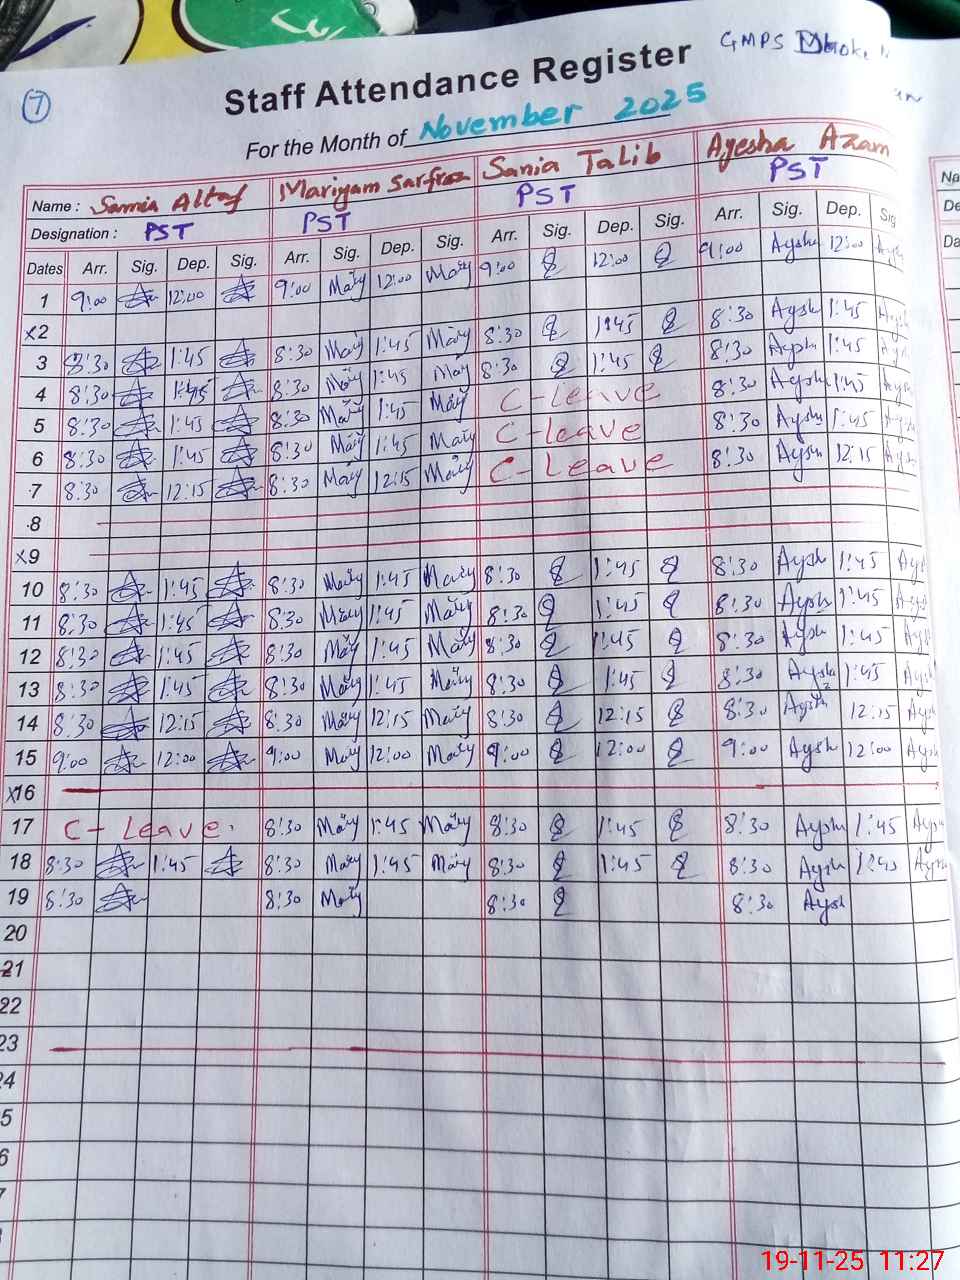 GMPS
7
Staff Attendance Register
For the Month of November 2025
Name : Samia Altaf Mariyam Sarfraz Sania Talib Ayesha Azam
Designation : PST PST PST PST
Dates Arr. Sig. Dep. Sig. Arr. Sig. Dep. Sig. Arr. Sig. Dep. Sig. Arr. Sig. Dep. Sig
1 9:00 12:00 9:00 Mary 12:00 Mary 9:00 12:00 9:00 Aysh 12:00
x2
3 8:30 1:45 8:30 Mary 1:45 Mary 8:30 1:45 8:30 Aysh 1:45
4 8:30 1:45 8:30 Mary 1:45 Mary 8:30 1:45 8:30 Aysh 1:45
5 8:30 1:45 8:30 Mary 1:45 Mary C-leave 8:30 Aysh 1:45
6 8:30 1:45 8:30 Mary 1:45 Mary C-leave 8:30 Aysh 1:45
7 8:30 12:15 8:30 Mary 12:15 Mary C-Leave 8:30 Aysh 12:15
8
x9
10 8:30 1:45 8:30 Mary 1:45 Mary 8:30 1:45 8:30 Aysh 1:45
11 8:30 1:45 8:30 Mary 1:45 Mary 8:30 1:45 8:30 Aysh 1:45
12 8:30 1:45 8:30 Mary 1:45 Mary 8:30 1:45 8:30 Aysh 1:45
13 8:30 1:45 8:30 Mary 1:45 Mary 8:30 1:45 8:30 Aysh 1:45
14 8:30 12:15 8:30 Mary 12:15 Mary 8:30 12:15 8:30 Aysh 12:15
15 9:00 12:00 9:00 Mary 12:00 Mary 9:00 12:00 9:00 Aysh 12:00
x16
17 C- Leave. 8:30 Mary 1:45 Mary 8:30 1:45 8:30 Aysh 1:45
18 8:30 1:45 8:30 Mary 1:45 Mary 8:30 1:45 8:30 Aysh
19 8:30 8:30 Mary 8:30 8:30 Aysh
20
21
22
23
24
5
6
7
19-11-25 11:27